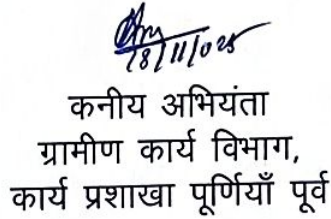 18/11/025
कनीय अभियंता
ग्रामीण कार्य विभाग,
कार्य प्रशाखा पूर्णियाँ पूर्व